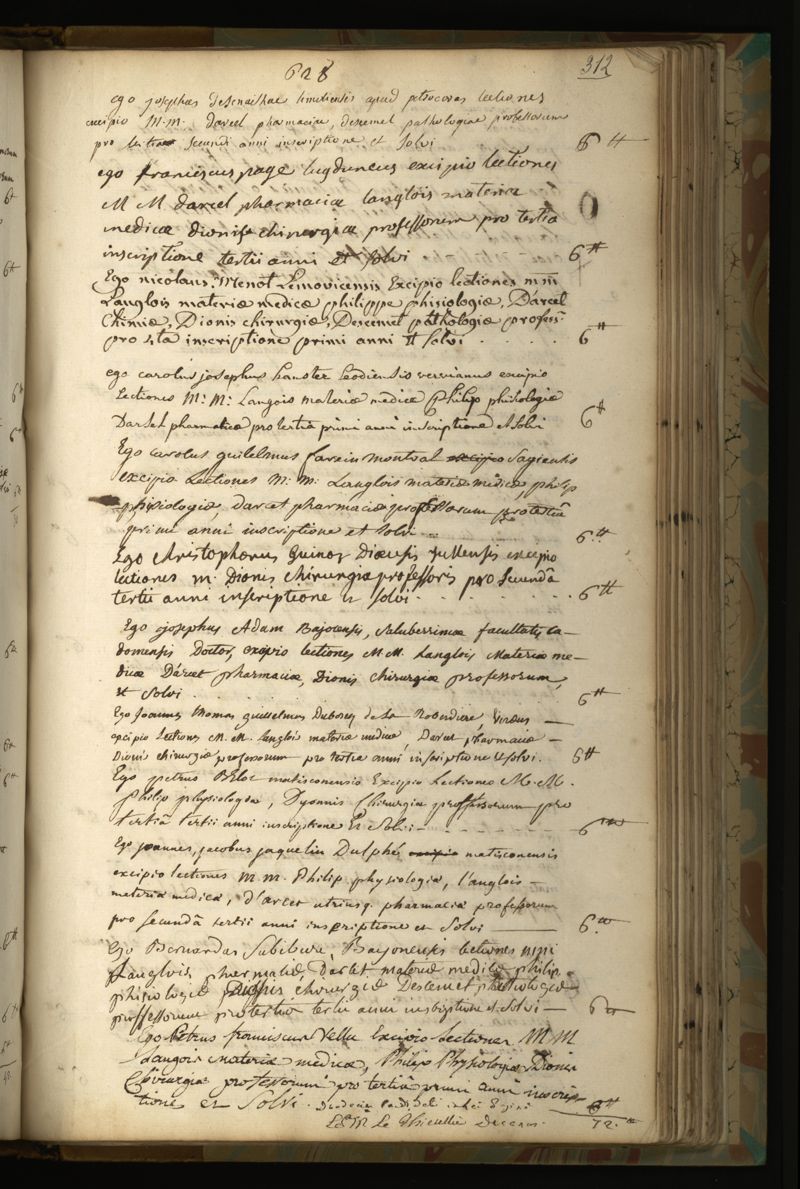 628
312
ego josephus Lemovicensis apud petrocoras lectiones
excipio M.M. darcet pharmaciae, descemet pathologiae professorum
pro secundi anni inscriptione et solvi 6 tt
ego franciscus page lugduneus excipio lectiones
M M darcet pharmaciæ langlois materiæ
medicæ dionis chirurgiæ professorum pro tertia
inscriptione tertii anni et solvi 6 tt
Ego nicolaus Menot Lemovicensis Excipio lectiones mm
Langlois materiæ medicæ philippe phisiologiæ, Darcet
Chimiæ, Dionis chirurgiæ, Descemet pathologiæ profess.
pro inscriptione primi anni et solvi 6 tt
ego carolus josephus Leodiensis vervianus excipio
Lectiones M: M: Langois materiæ medicæ Philip phisiologiæ
Darset pharmaticæ pro tertia primi anni inscriptione et solvi 6 tt
Ego carolus guilelmus farein montval excipio Sagiensis
excipio Lectiones M: M: Langlois materiæ medicæ, philip
phisiologiæ, darcet pharmaciæ professorum pro tertiâ
primi anni inscriptione et solvi 6 tt
Ego christophorus Guinot excipio
lectiones m. Dionis chirurgiæ professoris pro secundâ
tertii anni inscriptione et solvi 6 tt
Ego josephus Adam Bajocensis, saluberrimæ facultatis ca-
domensis Doctor, excipio lectiones M M. Langlois Materiæ me-
dicæ Darcet pharmaciæ, Dionis chirurgiæ professorum,
et solvi 6 tt
Ego Joannes thomas guillelmus Dubosq de la Roberdiere, Viræus
excipio Lectiones M. M. langlois materiæ medicæ, Darcet pharmaciæ
Dionis chirurgiæ professorum pro tertia anni inscriptione et solvi. 6 tt
Ego petrus Blot matisconensis Excipio Lectiones M. M.
Philip physiologia, Dyonnis Chirurgiæ professorum pro
tertiâ tertii anni inscriptione Et Solvi 6 tt
Ego joannes, jacobus jaquelin Dulphé excipio matisconensis
excipio lectiones M. M. Philip physiologia, l'anglois
materia medica, d'arcet utriusq. pharmacia professorum
pro secundâ tertii anni inscriptione et solvi 6 tt
Ego Bernardus Bajonensis lectiones
Langlois pharmaciæ, Darcet materiæ medicæ philip
phisiologiæ Dionis chirurgiæ Descemet pathologiæ
professorum pro tertia tertii anni inscriptione et solvi 6 tt
Ego Petrus franciscus Vella Excipio Lectiones M M
Langois Materiæ medicæ, Philip Physiologiæ Dionis
Chirurgiæ professorum pro tertiâ primi anni inscrip-
tione et solvi. 6 tt
Le Thieullier Decanus. 72. tt